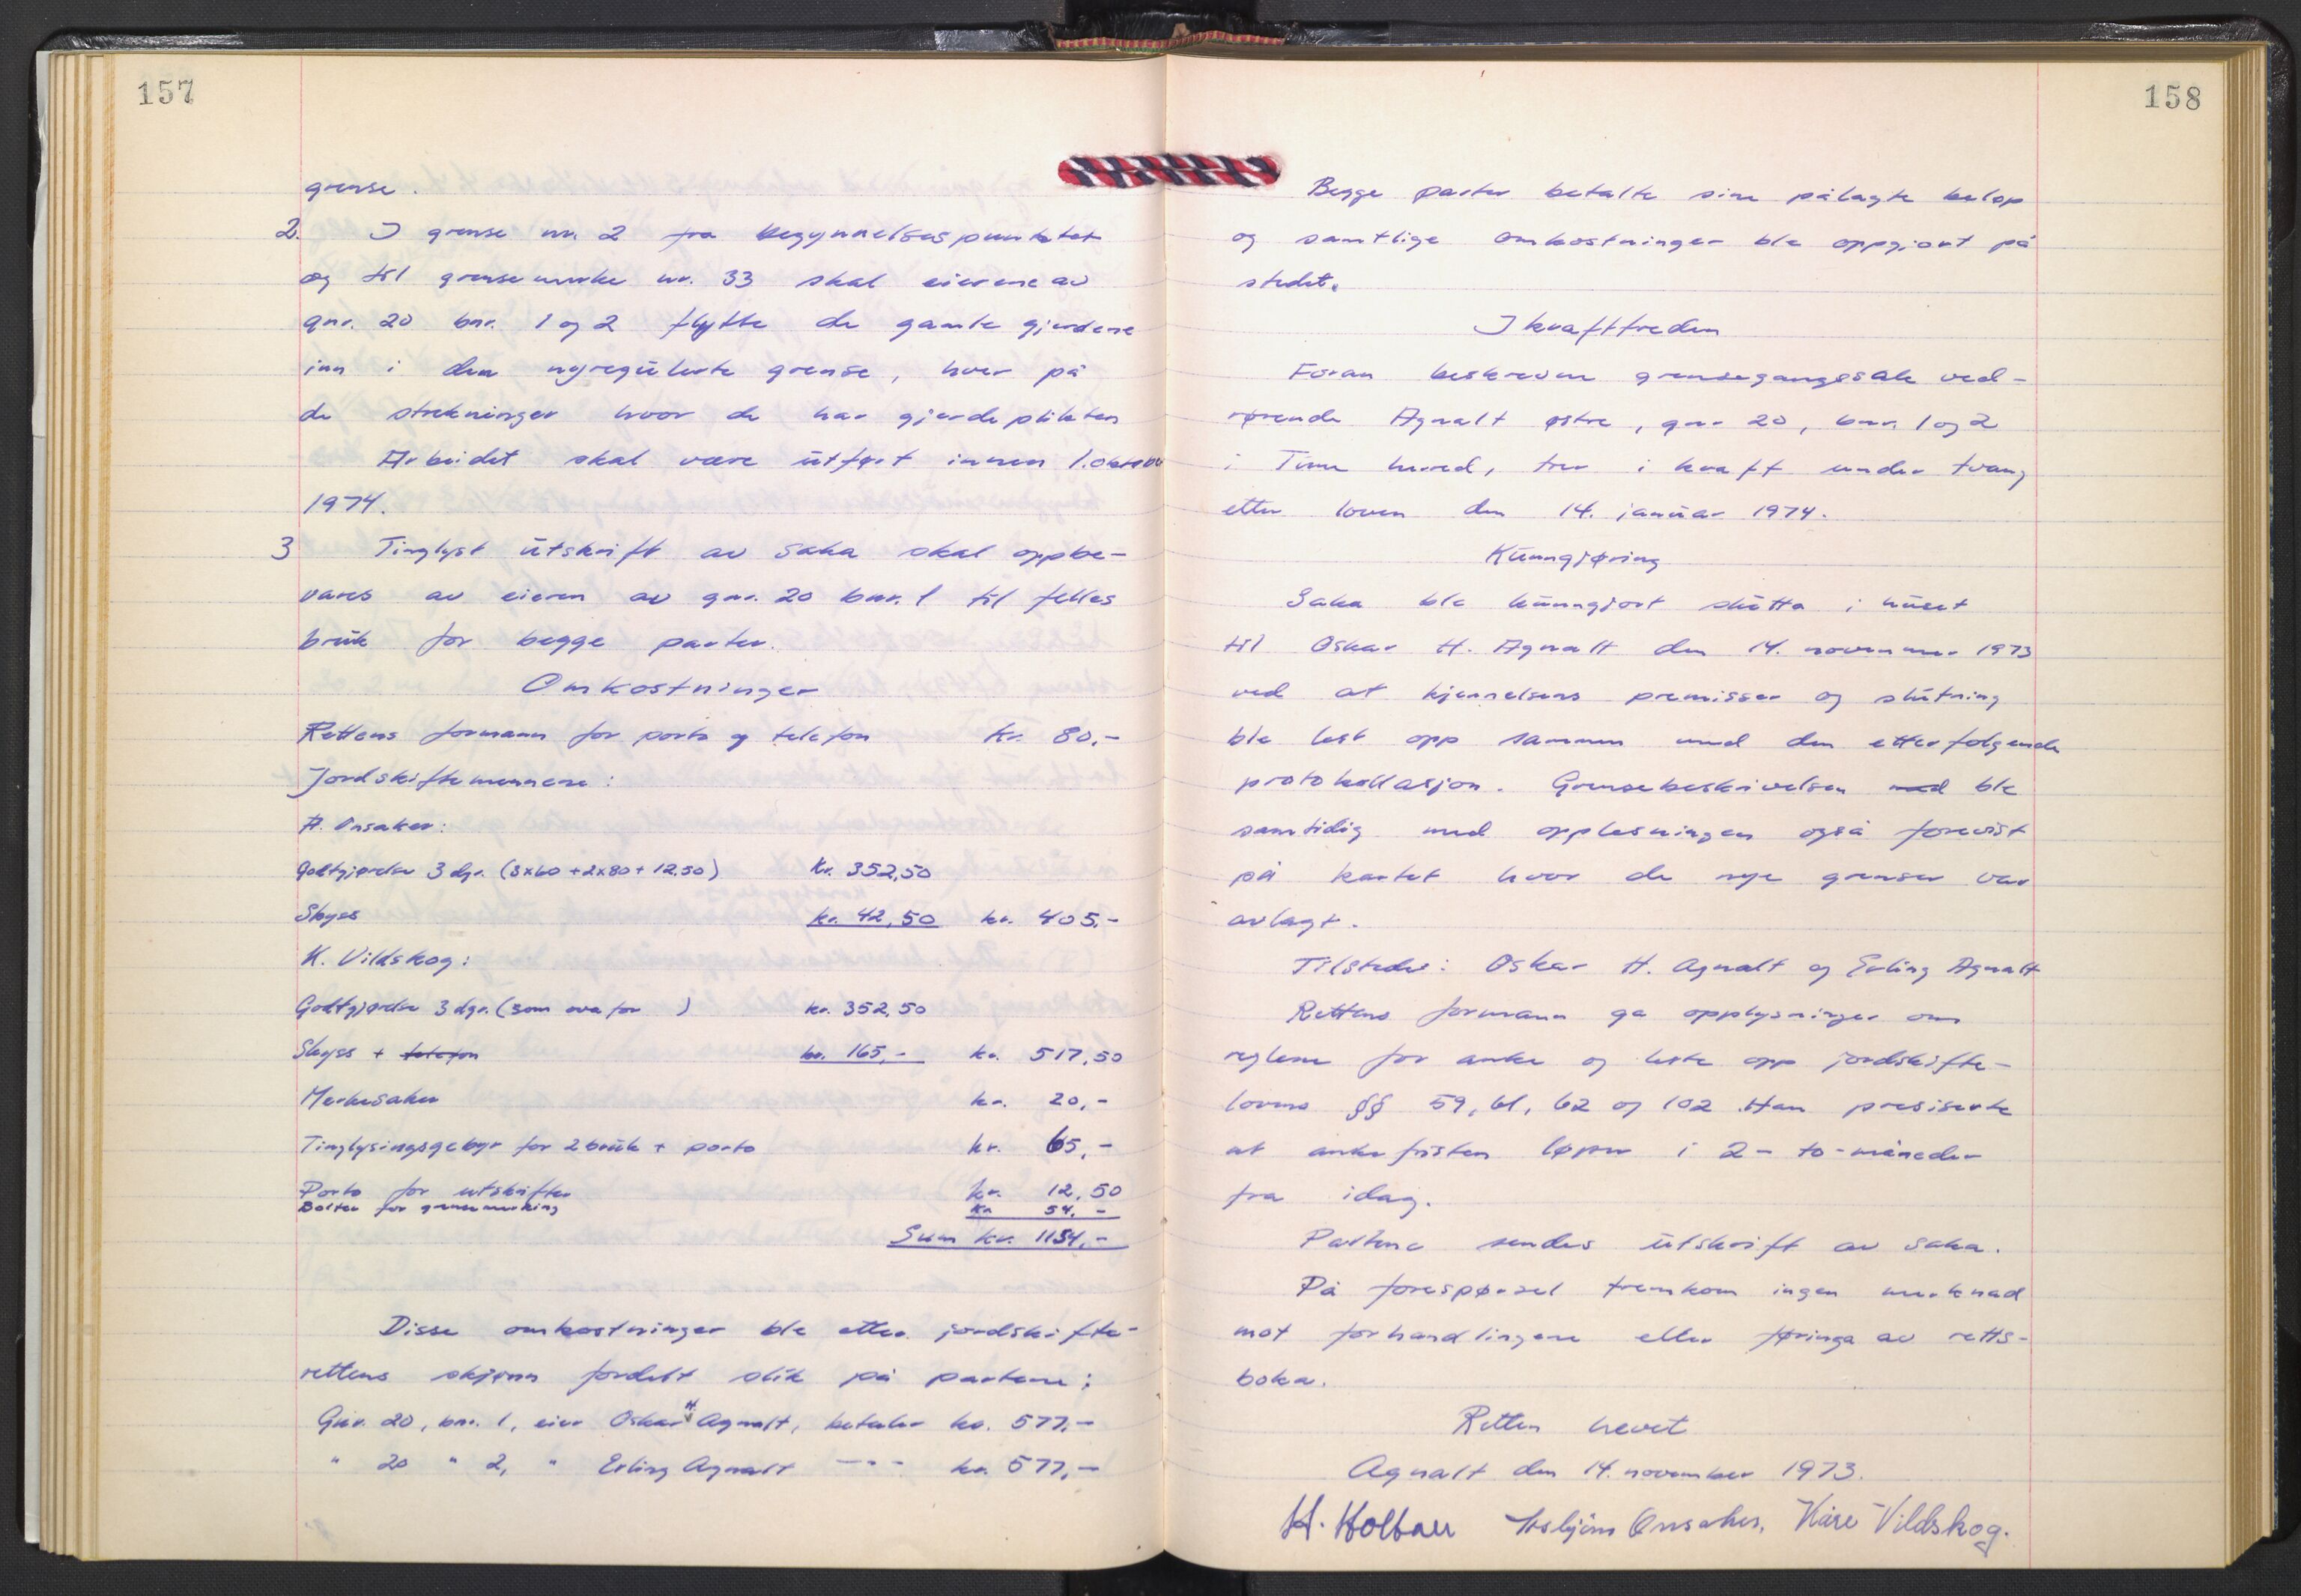 157
grense.
2. I grense nr. 2 fra begynnelsespunktet
og til grensemerke nr. 33 skal eierene av
gnr. 20 bnr. 1 og 2 flytte de gamle gjerdene
inn i den nyregulerte grense, hver på
de strekninger hvor de har gjerdeplikten
Arbeidet skal være utført innen 1. oktober
1974.
3 Tinglyst utskrift av saka skal oppbe-
vares av eieren av gnr. 20 bnr. 1 til felles
bruk for begge parter.
Omkostninger
Rettens formann for porto og telefon kr. 80,-
Jordskiftemennene:
A. Onsaker:
Godtgjørelse 3 dgr. (3x60 + 2x80 + 12,50) Kr. 352,50
Skyss kr. 42,50 kr. 405,-
K. Vildskog:
Godtgjørelse 3 dgr. (som ovafor ) kr. 352,50
Skyss + telefon kr. 165,- kr. 517,50
Merkesaker kr. 20,-
Tinglysingsgebyr for 2 bruk + porto kr. 65,-
Porto for utskrifter kr. 12,50
Bolter for grensemerking kr. 54,-
Sum kr. 1154,-
Disse omkostninger ble etter jordskifte-
rettens skjønn fordelt slik på partene:
Gnr. 20, bnr. 1, eier Oskar H. Agnalt, betaler kr. 577,-
" 20 " 2, " Erling Agnalt -"- kr. 577,-
158
Begge parter betalte sine pålagte beløp
og samtlige omkostninger ble oppgjort på
stedet.
Ikrafttreden
Foran beskrevne grensegangssak ved-
rørende Agnalt østre, gnr 20, bnr. 1 og 2
i herred, trer i kraft under tvang
etter loven den 14. januar 1974.
Kunngjøring
Saka ble kunngjort slutta i huset
til Oskar H. Agnalt den 14. november 1973
ved at kjennelsens premisser og slutning
ble lest opp sammen med den etterfølgende
protokollasjon. Grensebeskrivelsen med ble
samtidig med opplesningen også forevist
på kartet hvor de nye grenser var
avlagt.
Tilstede: Oskar H. Agnalt og Erling Agnalt
Rettens formann ga opplysninger om
reglene for anke og leste opp jordskifte-
lovens §§ 59, 61, 62 og 102. Han presiserte
at ankefristen løper i 2- to-måneder
fra idag.
Partene sendes utskrift av saka.
På forespørsel fremkom ingen merknad
mot forhandlingene eller føringa av retts-
boka.
Retten hevet
Agnalt den 14. november 1973.
H. Holbau Asbjørn Onsaker, Kåre Vildskog.